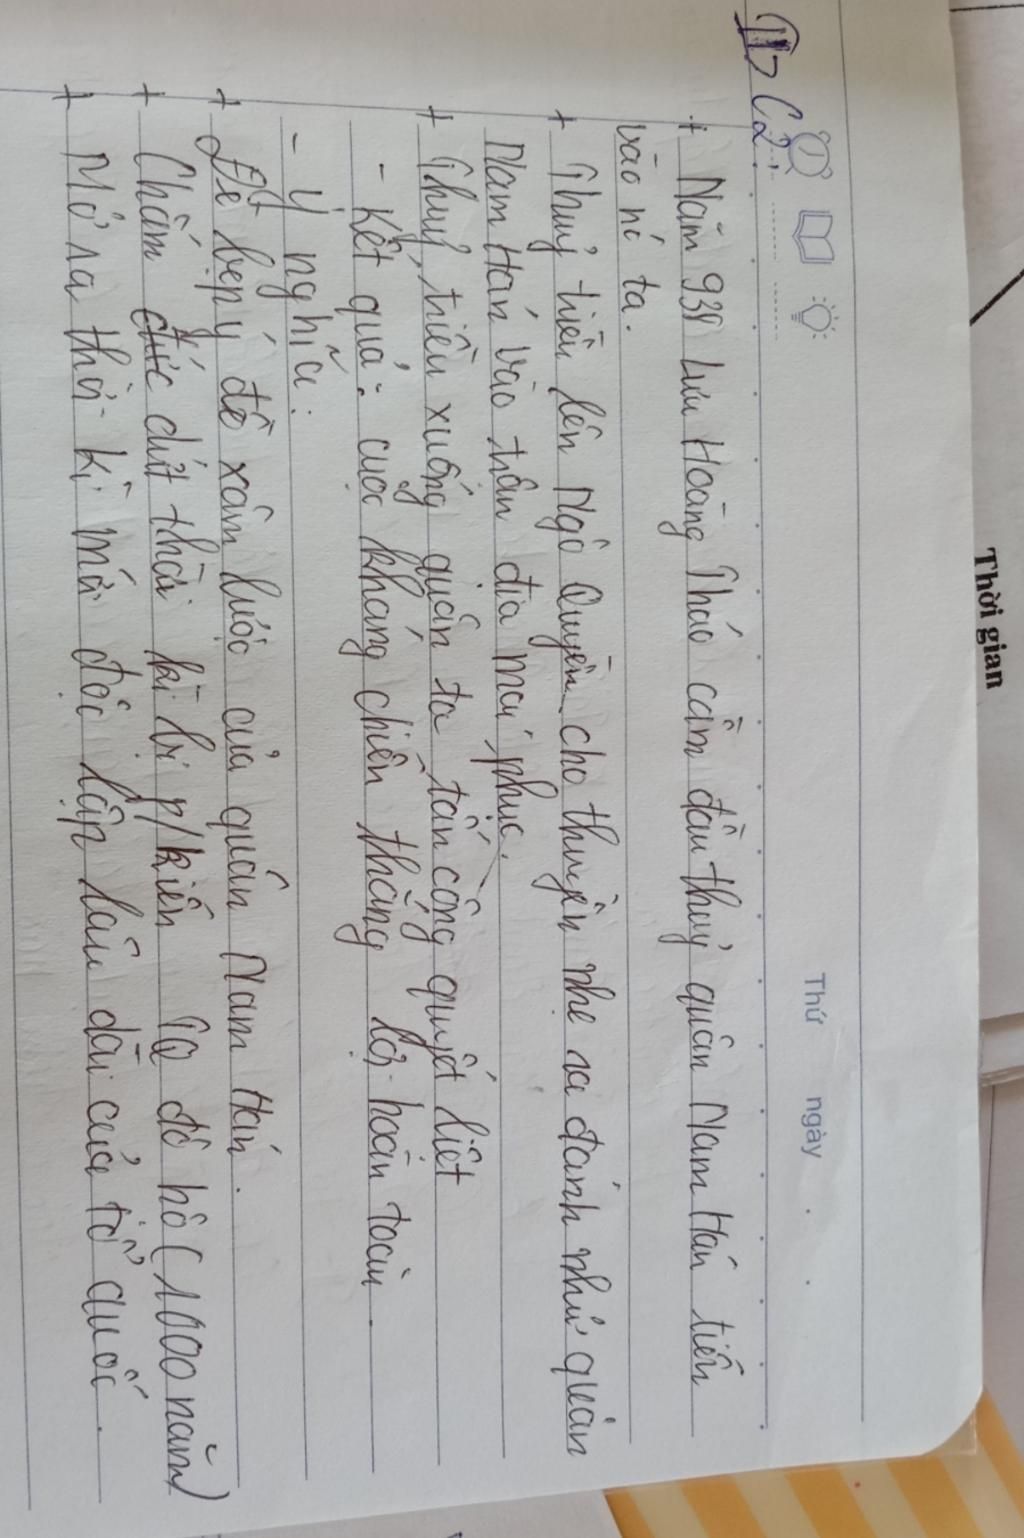 Thời gian
Thứ ngày
II> C2:
+ Năm 938 Lưu Hoàng Tháo cầm đầu thuỷ quân Nam Hán tiến
vào nc ta.
+ Thuỷ triều lên Ngô Quyền cho thuyền nhẹ ra đánh nhử quân
Nam Hán vào trận địa mai phục.
+ Thuỷ triều xuống quân ta tấn công quyết liệt
- Kết quả: cuộc kháng chiến thắng lợi hoàn toàn.
- Ý nghĩa:
+ Đè bẹp ý đồ xâm lược của quân Nam Hán.
+ Chấm dứt thời kì bị p/kiến TQ đô hộ (1000 năm)
+ Mở ra thời kì mới độc lập lâu dài của tổ quốc.